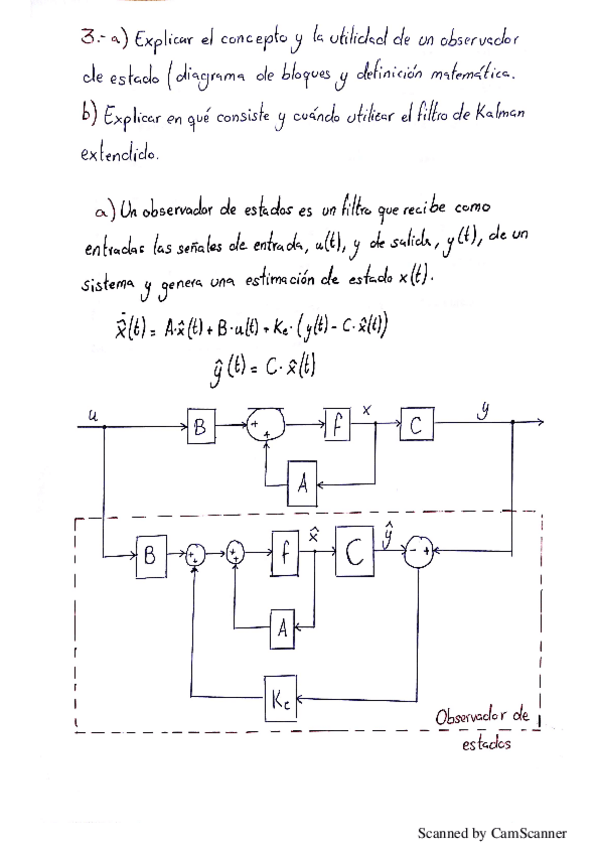 3.- a) Explicar el concepto y la utilidad de un observador
de estado (diagrama de bloques y definición matemática.
b) Explicar en qué consiste y cuándo utilizar el filtro de Kalman
extendido.
a) Un observador de estados es un filtro que recibe como
entradas las señales de entrada, u(t), y de salida, y(t), de un
sistema y genera una estimación de estado x(t).
x̂̇(t) = A·x̂(t) + B·u(t) + Ke·(y(t) - C·x̂(t))
ŷ(t) = C·x̂(t)
u
B
+
+
∫
x
C
y
A
B
+
+
+
+
∫
x̂
C
ŷ
- +
A
Ke
Observador de
estados
Scanned by CamScanner